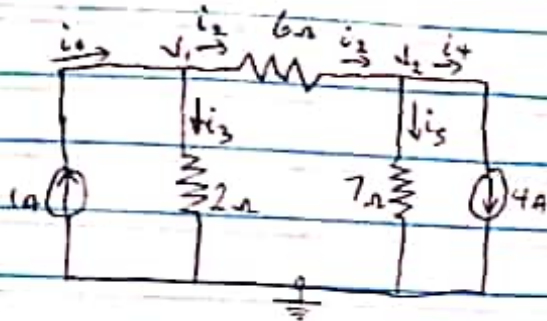 i₁ V₁ i₂ 6Ω i₂ V₂ i₄
i₃ i₅
1A 2Ω 7Ω 4A